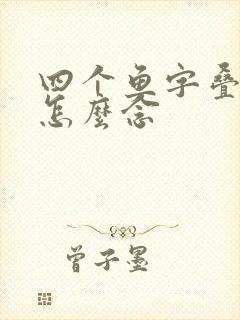 四个鱼字叠
怎麼念
曾子墨